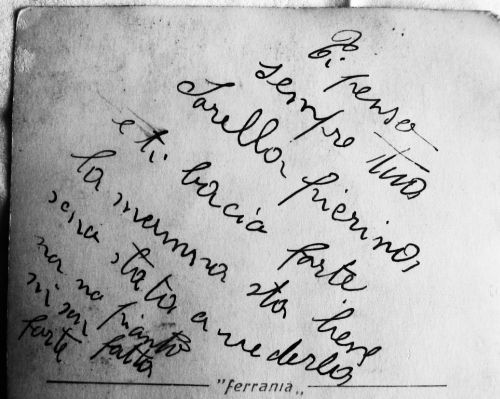 Ti penso
sempre tua
Sorella pierina
e ti bacia forte
la mamma sta bene
sono stata a vederla
ma na pianto
forte
"ferrania"